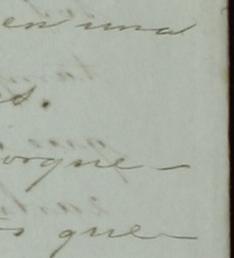 en una
s.
orque
s que